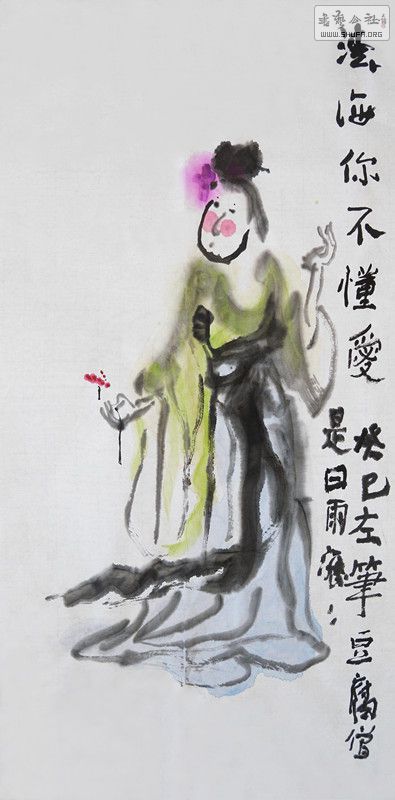 書藝公社
WWW.SHUFA.ORG
法海你不懂愛
癸巳左筆豆腐僧
是日雨